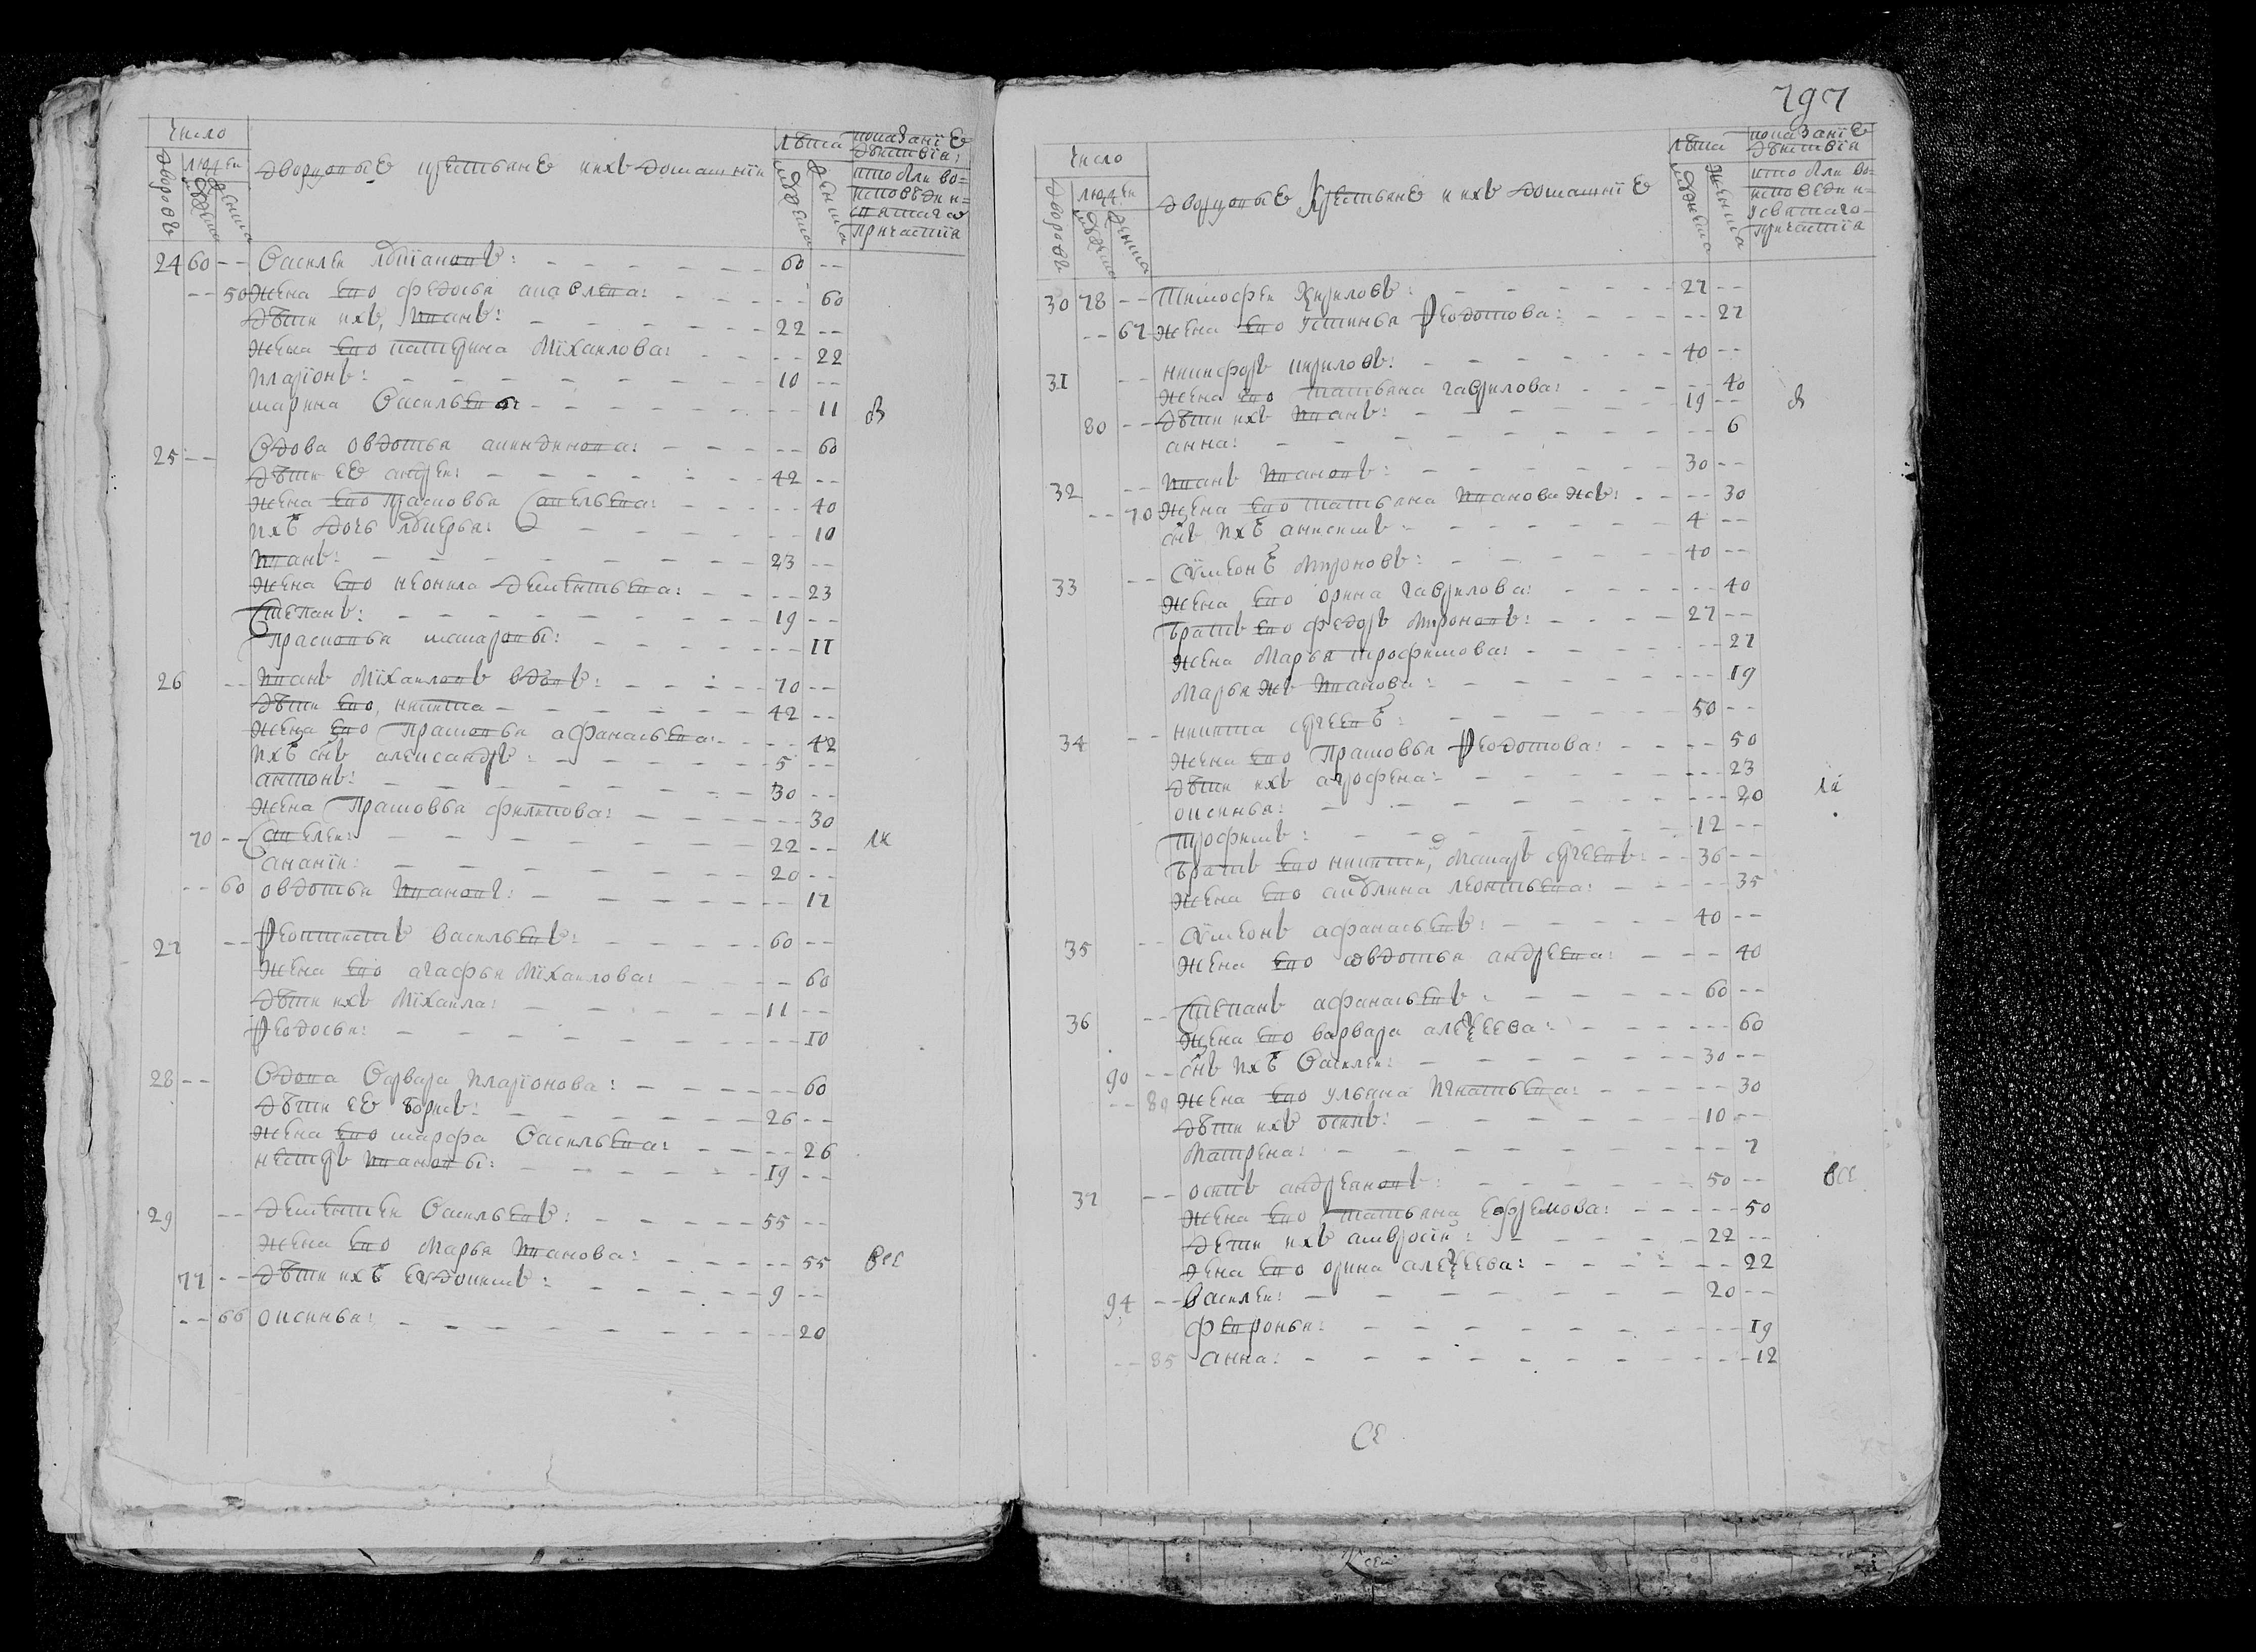 число
дворовъ
людеи
мужеска
женска
дворцовые крестьяне и ихъ домашнїи
лѣта
мужеска
женска
показанїе
дѣиствїя:
кто были во=
исповѣди и=
святаго
причастїя
24 60 -- Василеи Лукїановъ: 60 --
-- 50 Жена ево Федосья Иаковлева: -- 60
Дѣти ихъ, Иванъ: 22 --
Жена ево катерина Мїхаилова: -- 22
Иларїонъ: 10 --
марина Васильева -- 11
25 -- Вдова овдотья: -- 60
Дѣти ее андреи: 42 --
жена ево Прасковья Савельева: -- 40
Ихъ дочь Лукерья: -- 10
Иванъ: 23 --
Жена ево неонила Дементьева: -- 23
Степанъ: 19 --
Прасковья макаровы: -- 11
26 -- Иванъ Мїхаиловъ вдовъ: 70 --
Дѣти ево, никита 42 --
Жена ево Прасковья афанасьева: -- 42
Ихъ снъ александръ: 5 --
антонъ: 30 --
Жена Прасковья филипова: -- 30
70 -- Савелеи: 22 --
ананїи: 20 --
-- 60 овдотья Ивановы: -- 17
27 -- Феоктистъ васильевъ: 60 --
Жена ево агафья Мїхаилова: -- 60
Дѣти ихъ Мїхаила: 11 --
Феодосья: -- 10
28 -- Вдова Варвара Иларїонова: -- 60
Дѣти ее борисъ: 26 --
Жена ево марфа Васильева: -- 26
нестеръ Ивановы: 19 --
29 -- Дементеи Васильевъ: 55 --
Жена ево Марья Иванова: -- 55 все
77 -- Дѣти ихъ евдокимъ: 9 --
-- 66 оксинья: -- 20
797
число
дворовъ
людеи
мужеска
женска
дворцовые Крестьяне и ихъ домашнїе
лѣта
мужеска
женска
показанїе
дѣиствїя
кто были во=
исповѣди и=
у святаго
причастїя
30 78 -- Тимофеи Кириловъ: 27 --
-- 67 Жена ево устинья Феодотова: -- 27
31 -- никифоръ кириловъ: 40 --
Жена ево татьяна гаврилова: -- 40
80 -- Дѣти ихъ Иванъ: 19 --
анна: -- 6
32 -- Иванъ Ивановъ: 30 --
-- 70 Жена ево татьяна Иванова жъ: -- 30
снъ Ихъ анисимъ 4 --
33 -- Сѵмеонъ Мироновъ: 40 --
Жена ево орина гаврилова: -- 40
братъ ево федоръ Мироновъ: 27 --
Жена Марья трофимова: -- 27
Марья жъ Иванова: -- 19
34 -- никита сергеевъ: 50 --
Жена ево Прасковья Феодотова: -- 50
Дѣти ихъ агрофена: -- 23
оксинья: -- 20
трофимъ: 12 --
братъ ево никитин, Макаръ сергеевъ: 36 --
Жена ево акулина леонтьева: -- 35
35 -- Сѵмеонъ афанасьевъ: 40 --
Жена ево овдотья андреева: -- 40
36 -- Степанъ афанасьевъ 60 --
Жена ево варвара алеѯеева: -- 60
90 -- снъ Ихъ Василеи: 30 --
-- 80 Жена ево ульяна Игнатьева: -- 30
Дѣти ихъ осипъ: 10 --
Матрена: -- 7
37 -- осипъ андреяновъ: 50 -- все
Жена ево татьяна ефремова: -- 50
Дети ихъ амвросїи: 22 --
Жена ево орина алеѯеева: -- 22
94 -- Василеи: 20 --
февронья: -- 19
-- 85 анна: -- 12